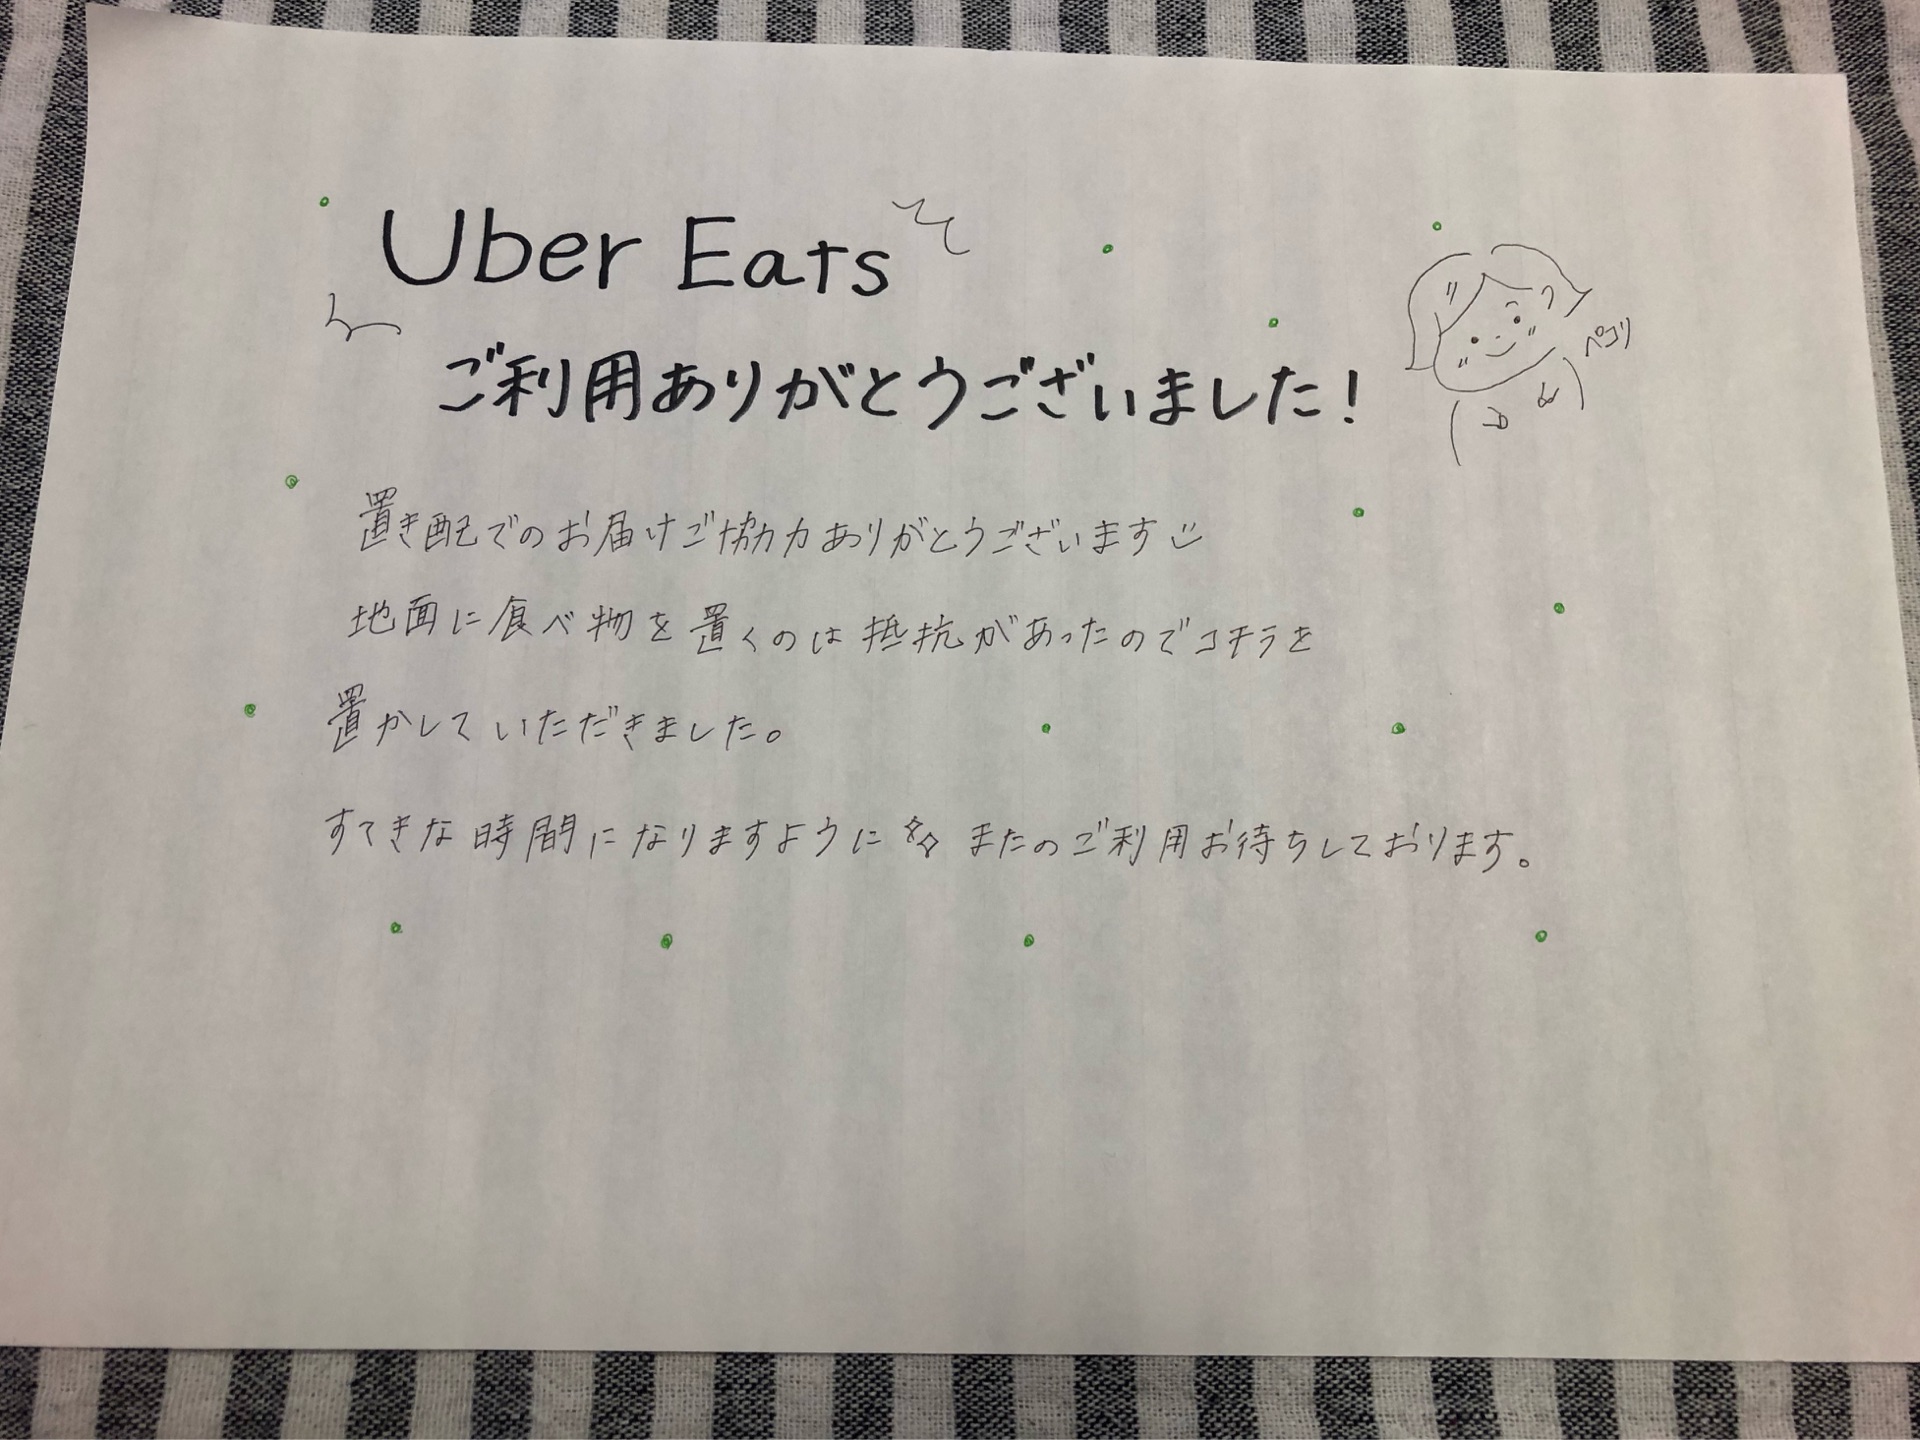 Uber Eats
ご利用ありがとうございました!
ペコリ
置き配でのお届けご協力ありがとうございます
地面に食べ物を置くのは抵抗があったのでコチラを
置かしていただきました。
すてきな時間になりますように またのご利用お待ちしております。